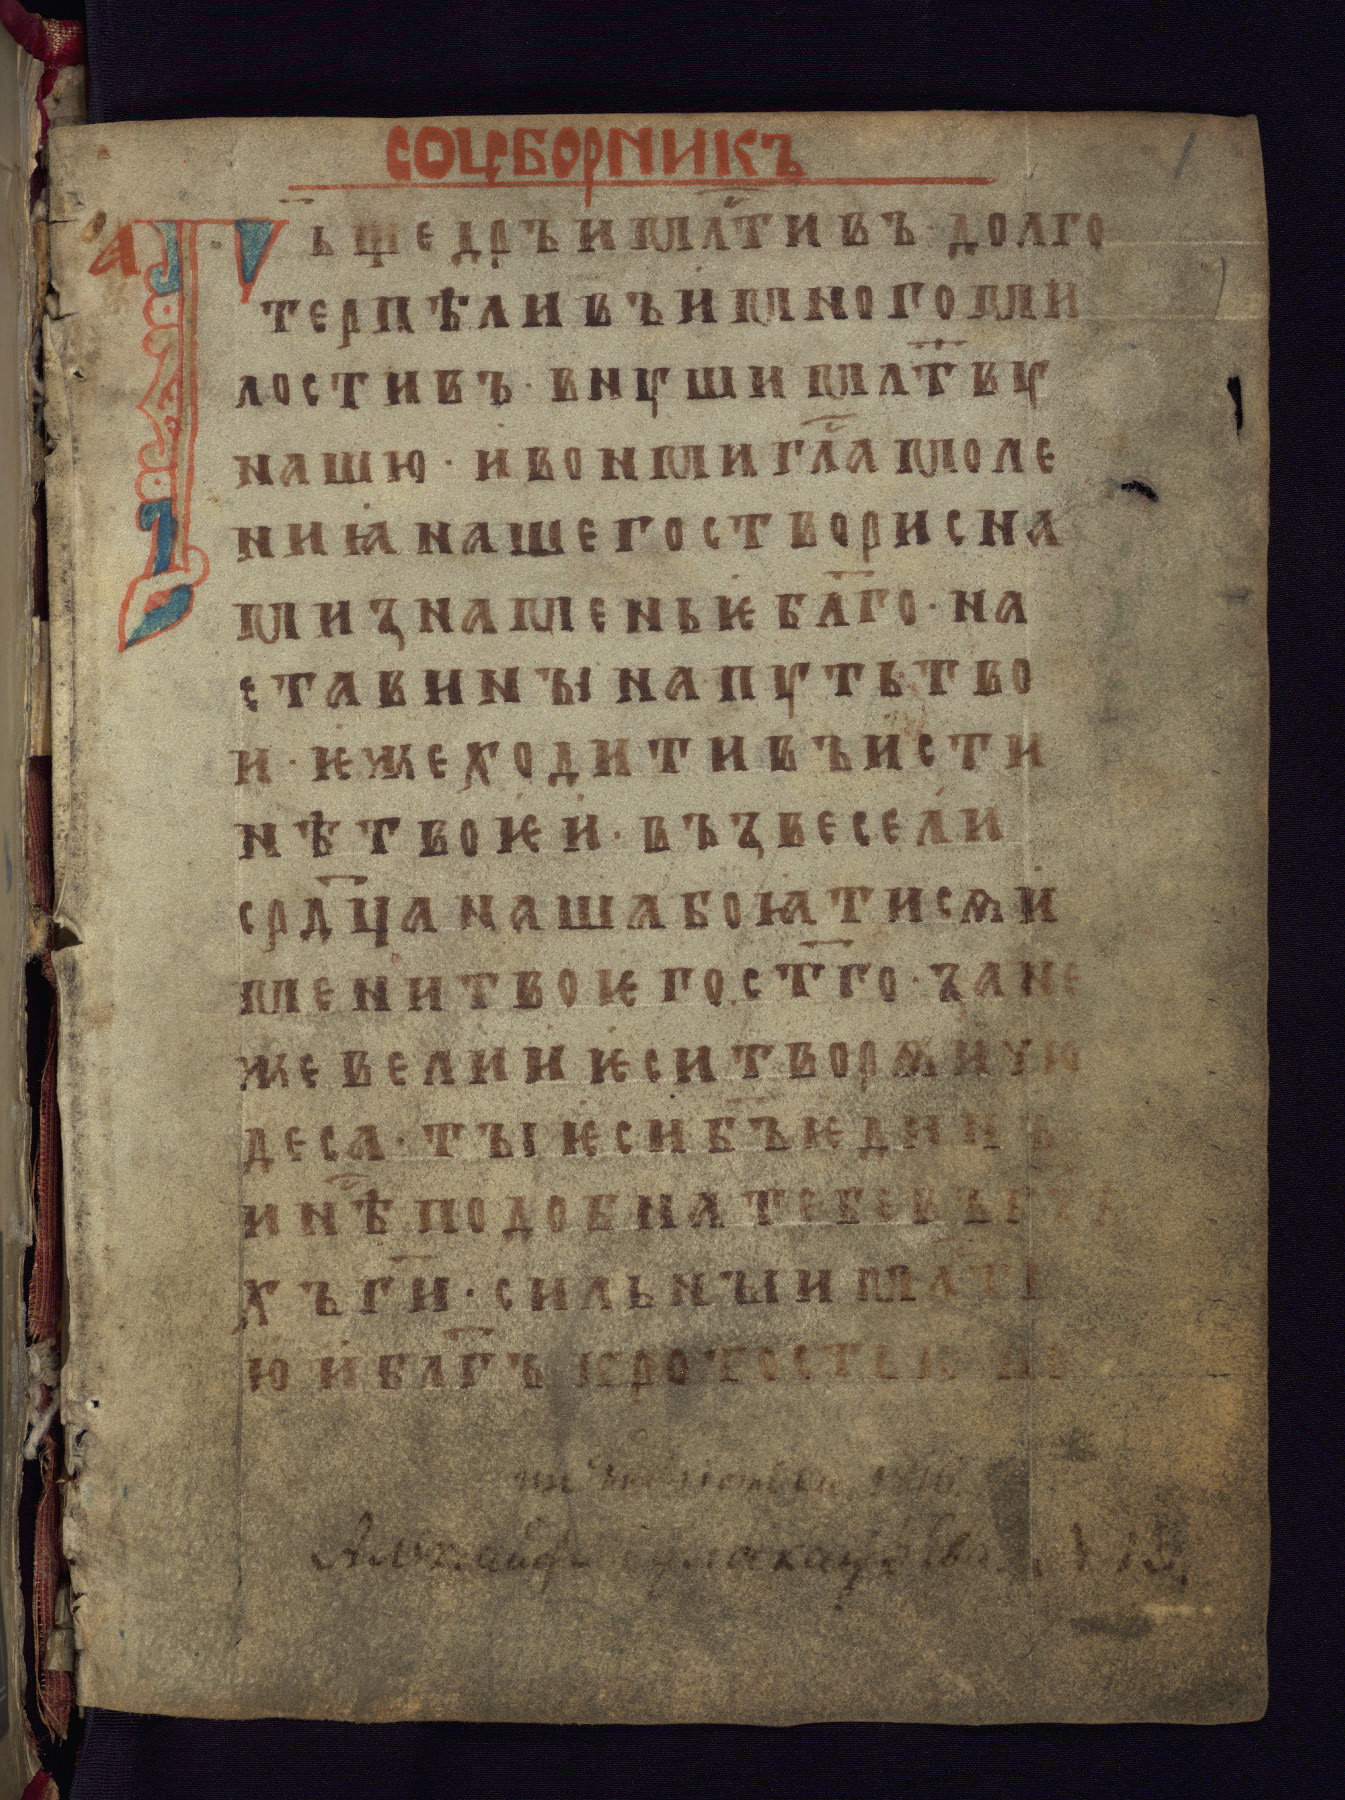 СОЦБОРНИКЪ
а
Г҃ь щедръ и млⷭ҇тивъ · долго
терпѣливъ и многоми
лостивъ · внуши млт҃ву
нашю · и вонми гл҃а моле
ниꙗ нашего створи с на
ми знаменьѥ бл҃го · на
стави нꙑ на путь тво
и · ѥже ходити въ исти
нѣ твоѥи · въздвесели
срд҃ца наша боꙗтисѧ и
мени твоѥго ст҃го · зане
же велии ѥси творѧи чю
деса · тꙑ ѥси б҃ъ ѥдинъ
и нѣⷭ҇ подобна тебе въ б҃зѣ
хъ г҃и · сильнꙑи млⷭ҇ти
ю и бл҃гъ крѣпостью